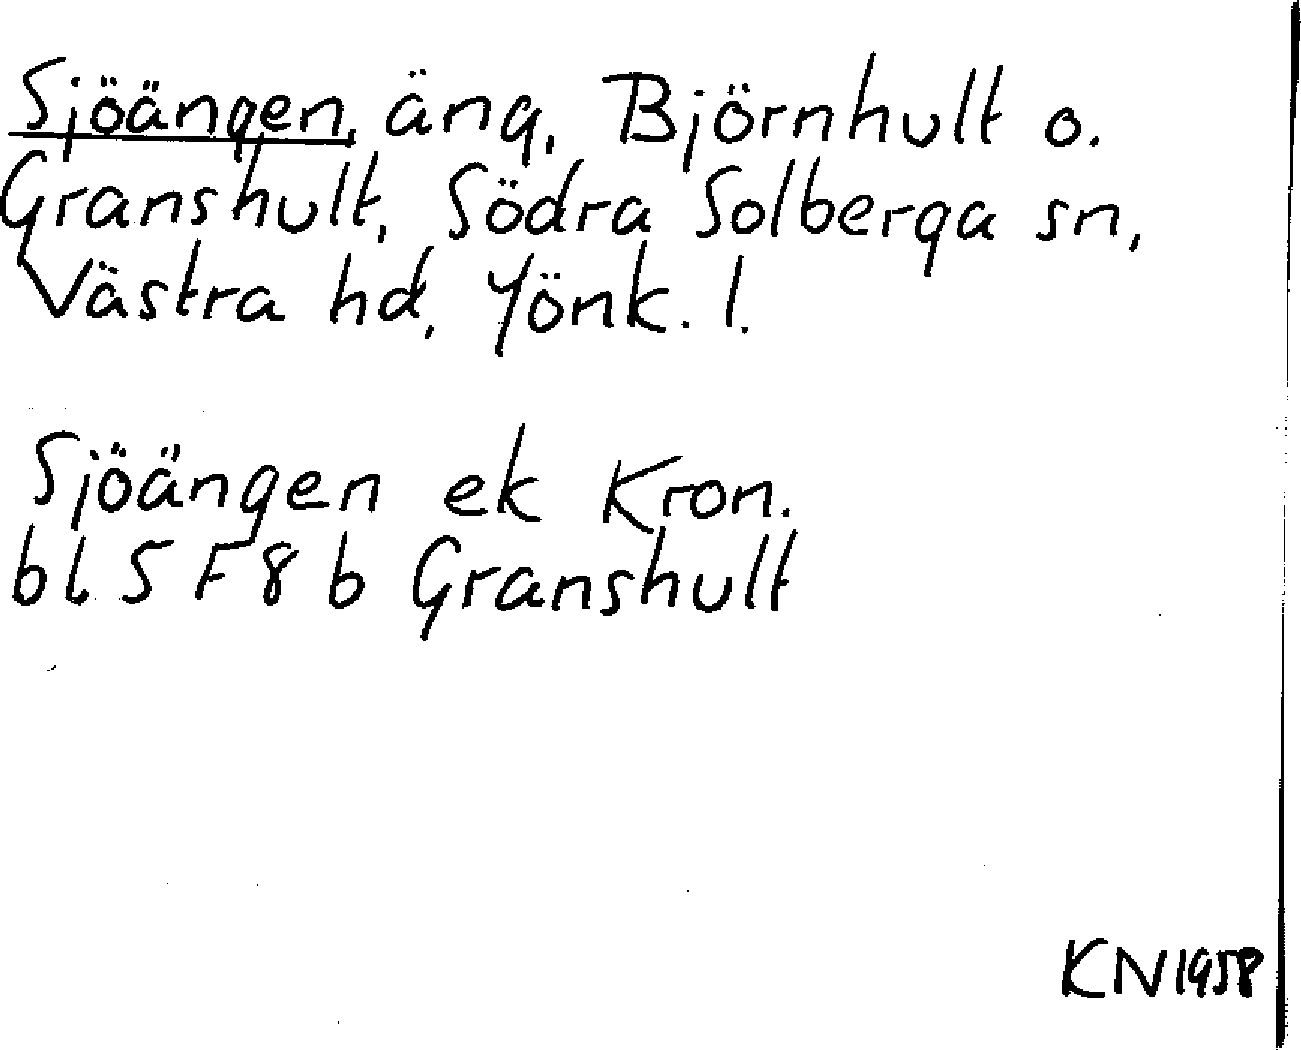 Sjöängen, äng, Björnhult o.
Granshult, Södra Solberga sn,
Västra hd, Jönk. l.
Sjöängen ek Kron.
bl. 5 F 8 b Granshult
KN 1958